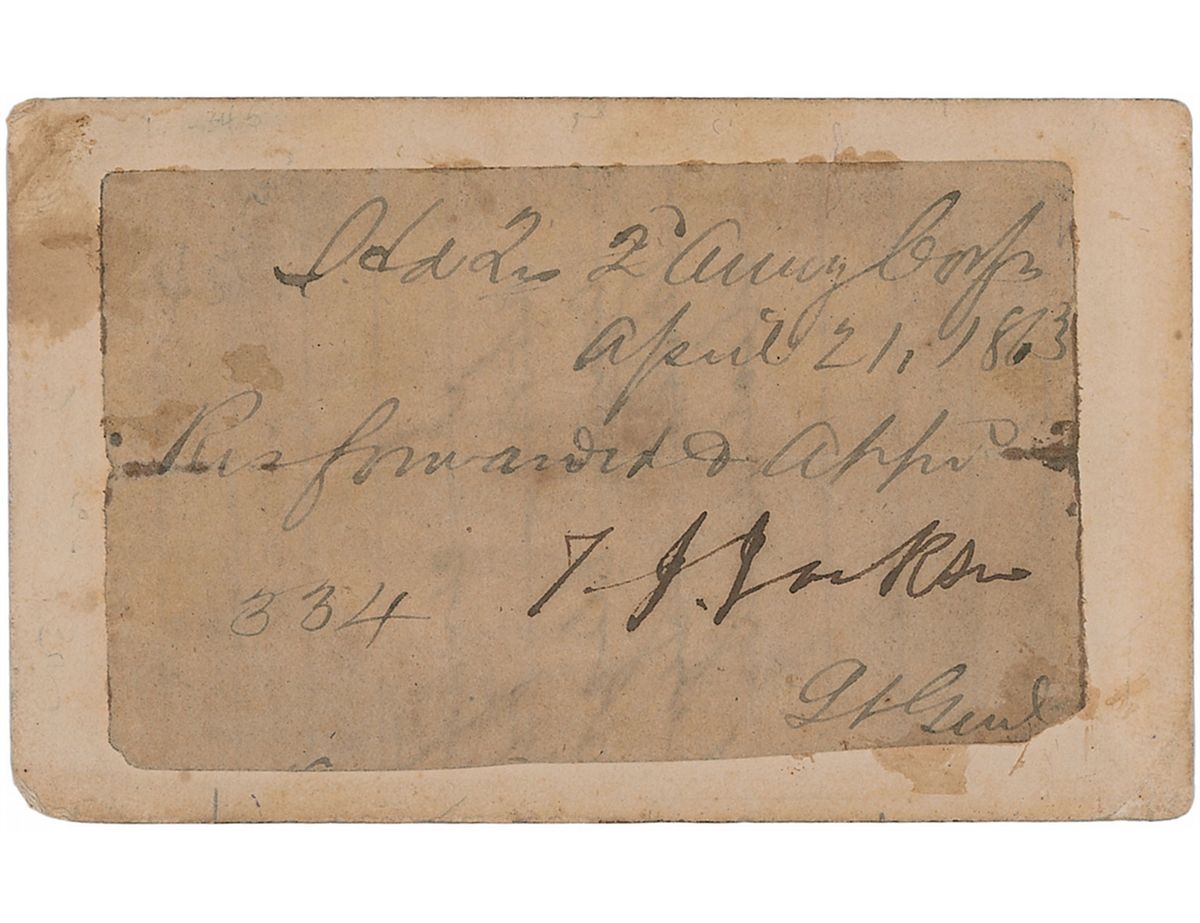 Hd Qrs 2d Army Corps
April 21, 1863
Res forwarded & Appd
T. J. Jackson
334
Lt Genl